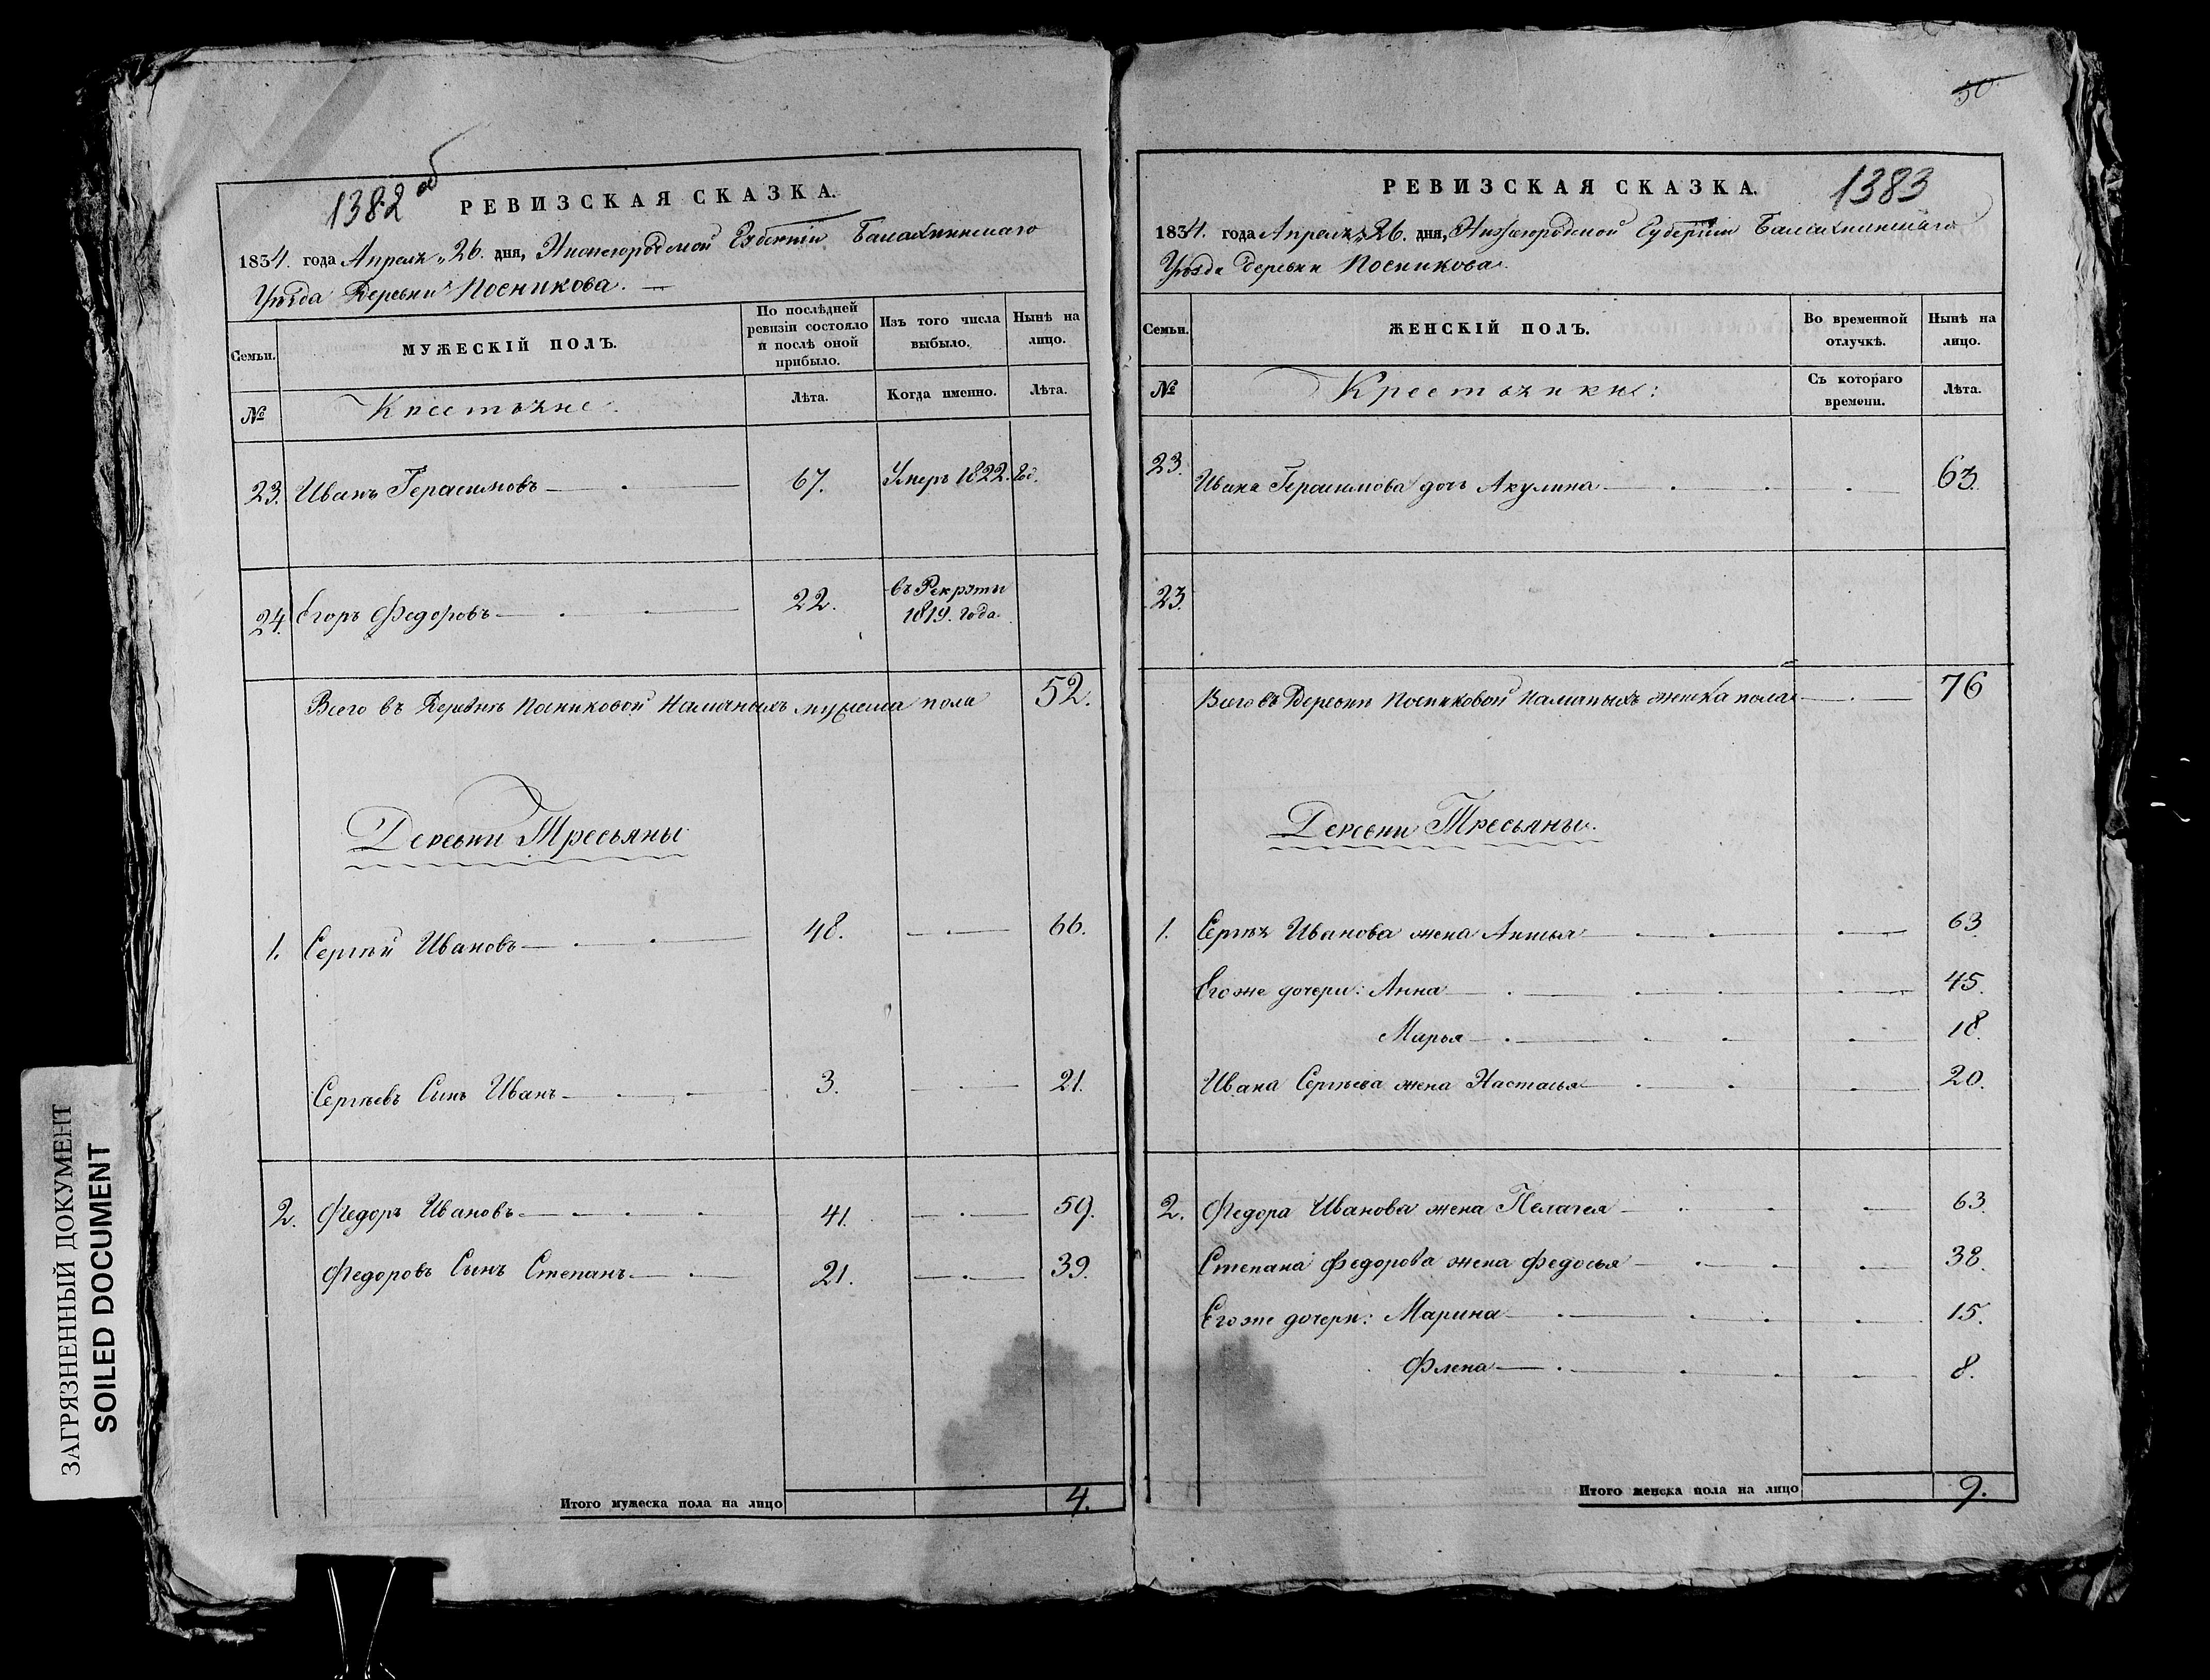 1382 об
РЕВИЗСКАЯ СКАЗКА.
1834. года Апреля „26. дня, Нижегородской Губернiи Балахнинскаго
Уѣзда Деревни Посникова.
Семьи.
МУЖЕСКІЙ ПОЛЪ.
По послѣдней
ревизіи состояло
и послѣ оной
прибыло.
Изъ того числа
выбыло.
Нынѣ на
лицо.
№
Крестьяне.
Лѣта.
Когда именно.
Лѣта.
23. Иванъ Герасимовъ 67. Умеръ 1822. год.
24. Егоръ Федоровъ 22. въ Рекруты
1819. года.
Всего въ Деревнѣ Посниковой Наличныхъ мужеска пола 52.
Деревни Тресьяны
1. Сергѣй Ивановъ 48. 66.
Сергѣевъ Сынъ Иванъ 3. 21.
2. Федоръ Ивановъ 41. 59.
Федоровъ Сынъ Степанъ 21. 39.
Итого мужеска пола на лицо 4.
50.
1383
РЕВИЗСКАЯ СКАЗКА.
1834. года Апреля „26. дня, Нижегородской Губернiи Балахнинскаго
Уѣзда Деревни Посникова.
Семьи.
ЖЕНСКІЙ ПОЛЪ.
Во временной
отлучкѣ.
Нынѣ на
лицо.
№
Крестьянки:
Съ котораго
времени.
Лѣта.
23. Ивана Герасимова дочь Акулина 63.
23.
Всего въ Деревни Посниковой Наличныхъ женска пола 76
Деревни Тресьяны.
1. Сергѣя Иванова жена 63
Его же дочери: Анна 45.
Марья 18.
Ивана Сергѣева жена Настасья 20.
2. Федора Иванова жена Пелагея 63.
Степана Федорова жена Федосья 38.
Его же дочери: Марина 15.
Флена 8.
Итого женска пола на лицо 9.
ЗАГРЯЗНЕННЫЙ ДОКУМЕНТ
SOILED DOCUMENT